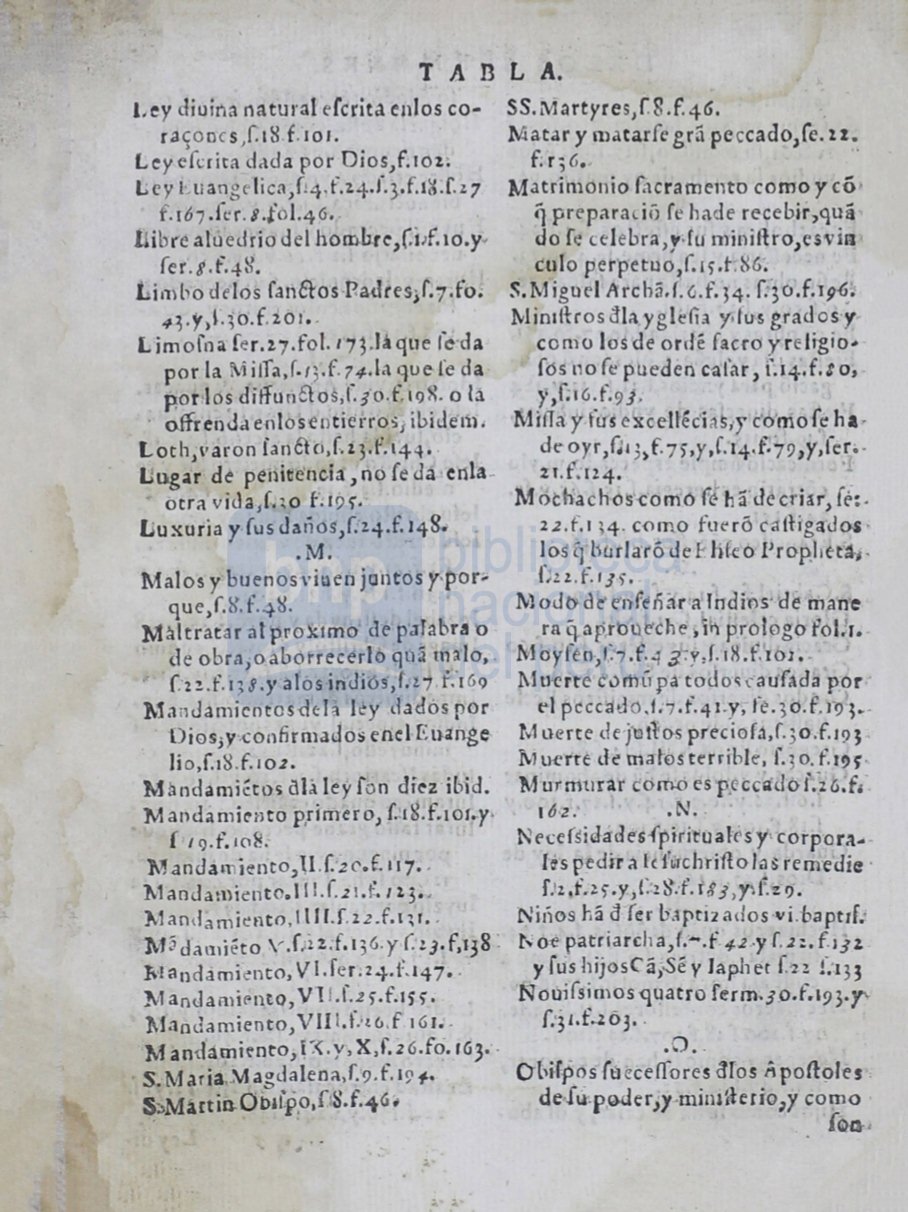 TABLA.
Ley diuina natural eſcrita enlos co-
raçones,ſ.18 f.101.
Ley eſcrita dada por Dios,f.102.
Ley Euangelica,ſ.4.f.24.ſ.3.f.18.ſ.27
f.167.ſer.8.fol.46.
Libre aluedrio del hombre,ſ.1.f.10.y
ſer.8.f.48.
Limbo delos ſanctos Padres,ſ.7.fo.
43.y,ſ.30.f.201.
Limoſna ſer.27.fol.173.la que ſe da
por la Miſſa,ſ.13.f.74.la que ſe da
por los diffunctos,ſ.30.f.198. o la
offrenda enlos entierros, ibidem.
Loth,varon ſancto,ſ.23.f.144.
Lugar de penitencia, no ſe da enla
otra vida,ſ.30 f.195.
Luxuria y ſus daños,ſ.24.f.148.
.M.
Malos y buenos viuen juntos y por-
que,ſ.8.f.48.
Maltratar al proximo de palabra o
de obra,o aborrecerlo quã malo,
ſ.22.f.138.y alos indios,ſ.27.f.169
Mandamientos dela ley dados por
Dios,y confirmados enel Euange
lio,ſ.18.f.102.
Mandamiẽtos đla ley ſon diez ibid.
Mandamiento primero, ſ.18.f.101.y
ſ 19.f.108.
Mandamiento,II.ſ.20.f.117.
Mandamiento.III.ſ.21.f.123.
Mandamiento,IIII.ſ.22.f.131.
Mãdamiẽto V.ſ.22.f.136.y ſ.23.f,138
Mandamiento,VI.ſer.24.f.147.
Mandamiento,VII.ſ.25.f.155.
Mandamiento,VIII.ſ.26.f 161.
Mandamiento,IX.y,X,ſ.26.fo.163.
S.Maria Magdalena,ſ.9.f.194.
S.Martin Obiſpo,ſ 8.f.46.
SS.Martyres,ſ.8.f.46.
Matar y matarſe grã peccado,ſe.22.
f.136.
Matrimonio ſacramento como y cõ
q̃ preparaciõ ſe hade recebir,quã
do ſe celebra,y ſu miniſtro,es vin
culo perpetuo,ſ.15.f.86.
S.Miguel Archã.ſ.6.f.34. ſ.30.f.196.
Miniſtros đla ygleſia y ſus grados y
como los de ordẽ ſacro y religio-
ſos no ſe pueden caſar, ſ.14.f.80,
y,ſ.16.f.93.
Miſſa y ſus excellẽcias,y como ſe ha
de oyr,ſ.13,f.75,y,ſ.14.f.79,y,ſer.
21.f.124.
Mochachos como ſe hã de criar, ſe:.
22.f.134. como fuerõ caſtigados
los q̃ burlarõ de Eliſeo Propheta,
ſ.22.f.135.
Modo de enſeñar a Indios de mane
ra q̃ aproueche, in prologo fol.1.
Moyſen,ſ.7.f.43.y,ſ.18.f.101.
Muerte comũ pa todos cauſada por
el peccado.ſ.7.f.41.y, ſe.30.f.193.
Muerte de juſtos precioſa,ſ.30.f.193
Muerte de malos terrible, ſ.30.f.195
Murmurar como es peccado ſ.26.f.
162.
.N.
Neceſsidades ſpirituales y corpora-
les pedir a Ieſuchriſto las remedie
ſ.2.f.25.y,ſ.28.f.183,y.f.29.
Niños hã đ ſer baptizados vi.baptiſ.
Noe patriarcha,ſ.7.f 42.y ſ.22.f.132
y ſus hijos Cã,Sẽ y Iaphet ſ.22 f.133
Nouiſsimos quatro ſerm.30.f.193.y
ſ.31.f.203.
.O.
Obiſpos ſuceſſores đlos Apoſtoles
de ſu poder,y miniſterio,y como
ſon
bnp biblioteca
nacional